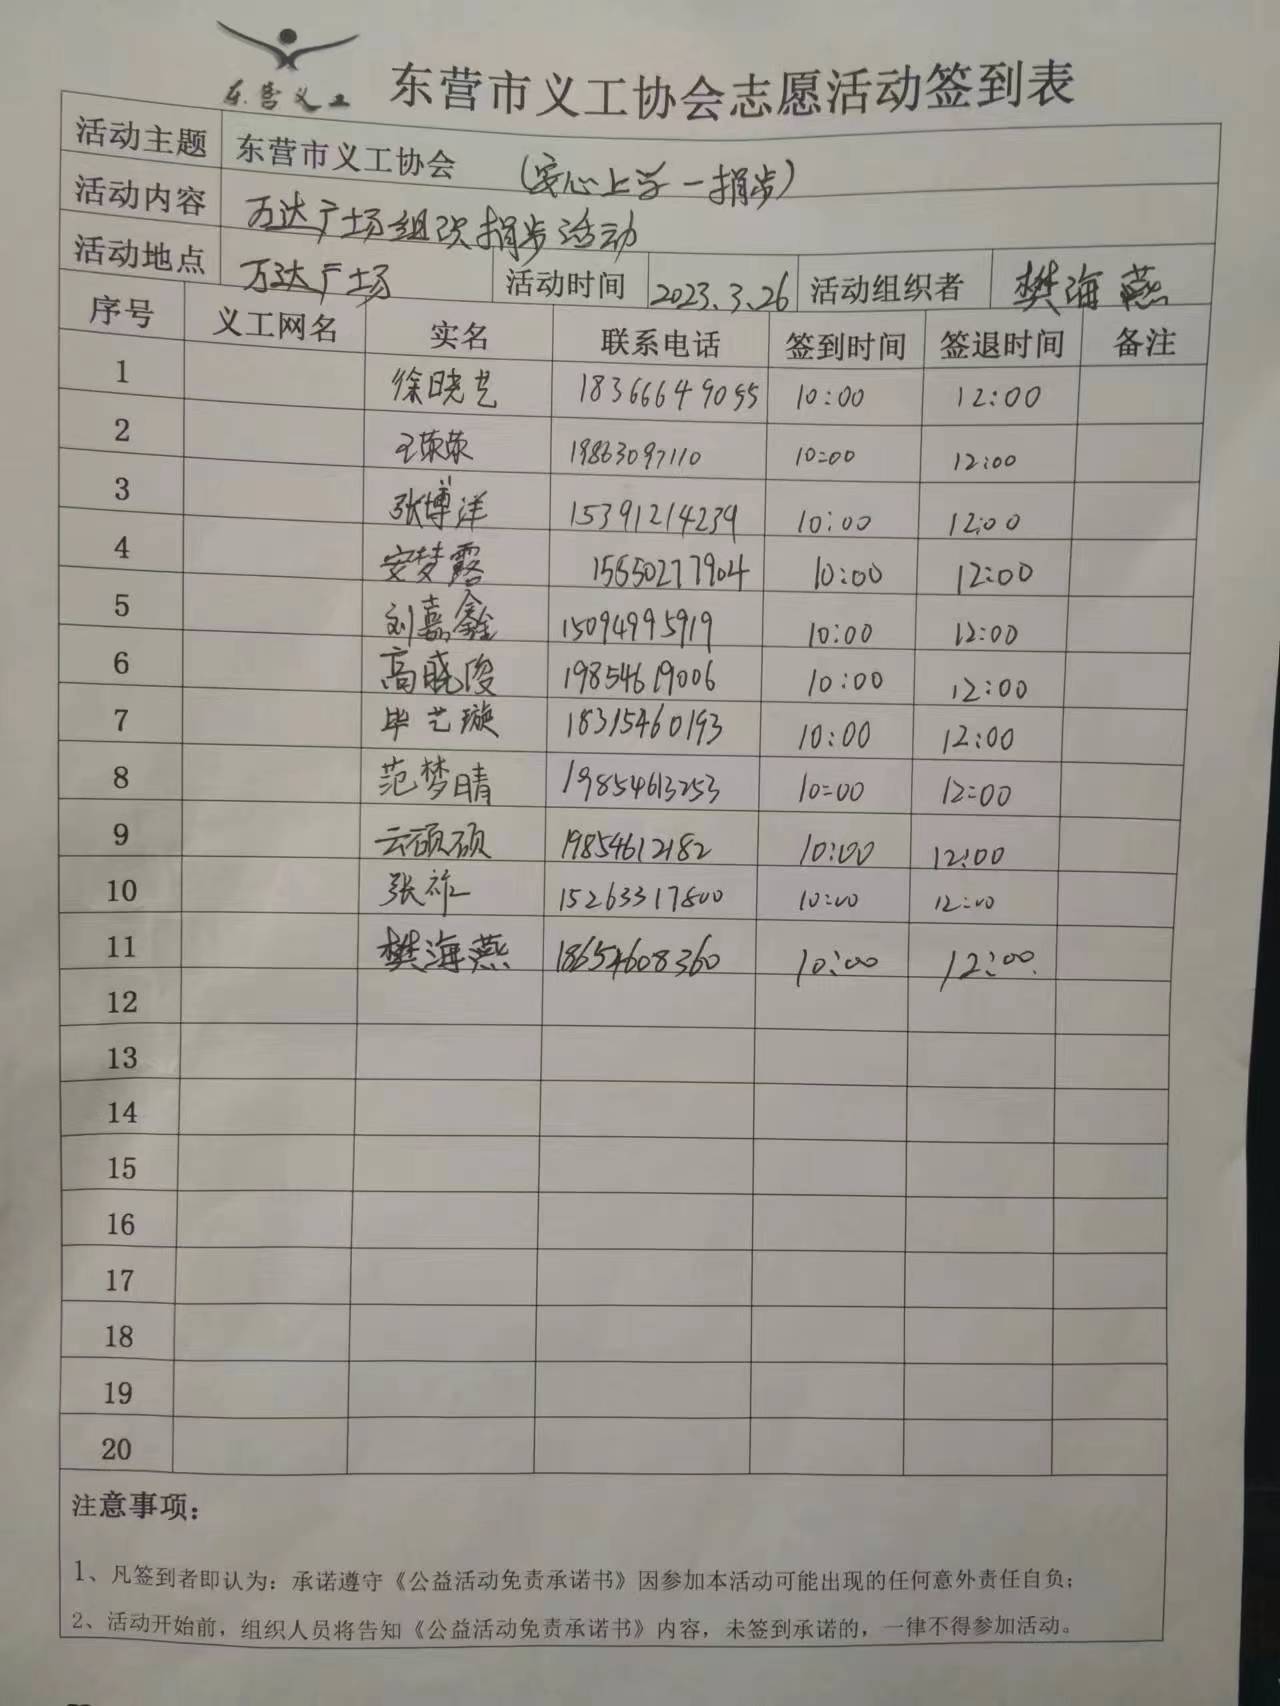 东营义工
东营市义工协会志愿活动签到表
活动主题 东营市义工协会 (安心上学一捐步)
活动内容 万达广场组织捐步活动
活动地点 万达广场 活动时间 2023.3.26 活动组织者 樊海燕
序号 义工网名 实名 联系电话 签到时间 签退时间 备注
1 徐晓艺 18366649055 10:00 12:00
2 王荣荣 19863097110 10:00 12:00
3 张博洋 15391214239 10:00 12:00
4 安梦露 15650277904 10:00 12:00
5 刘嘉鑫 15094995919 10:00 12:00
6 高晓俊 19854619006 10:00 12:00
7 毕艺璇 18315460193 10:00 12:00
8 范梦晴 19854613253 10:00 12:00
9 云硕硕 19854612182 10:00 12:00
10 张 15263317800 10:00 12:00
11 樊海燕 18654608360 10:00 12:00
12
13
14
15
16
17
18
19
20
注意事项：
1、凡签到者即认为：承诺遵守《公益活动免责承诺书》因参加本活动可能出现的任何意外责任自负；
2、活动开始前，组织人员将告知《公益活动免责承诺书》内容，未签到承诺的，一律不得参加活动。